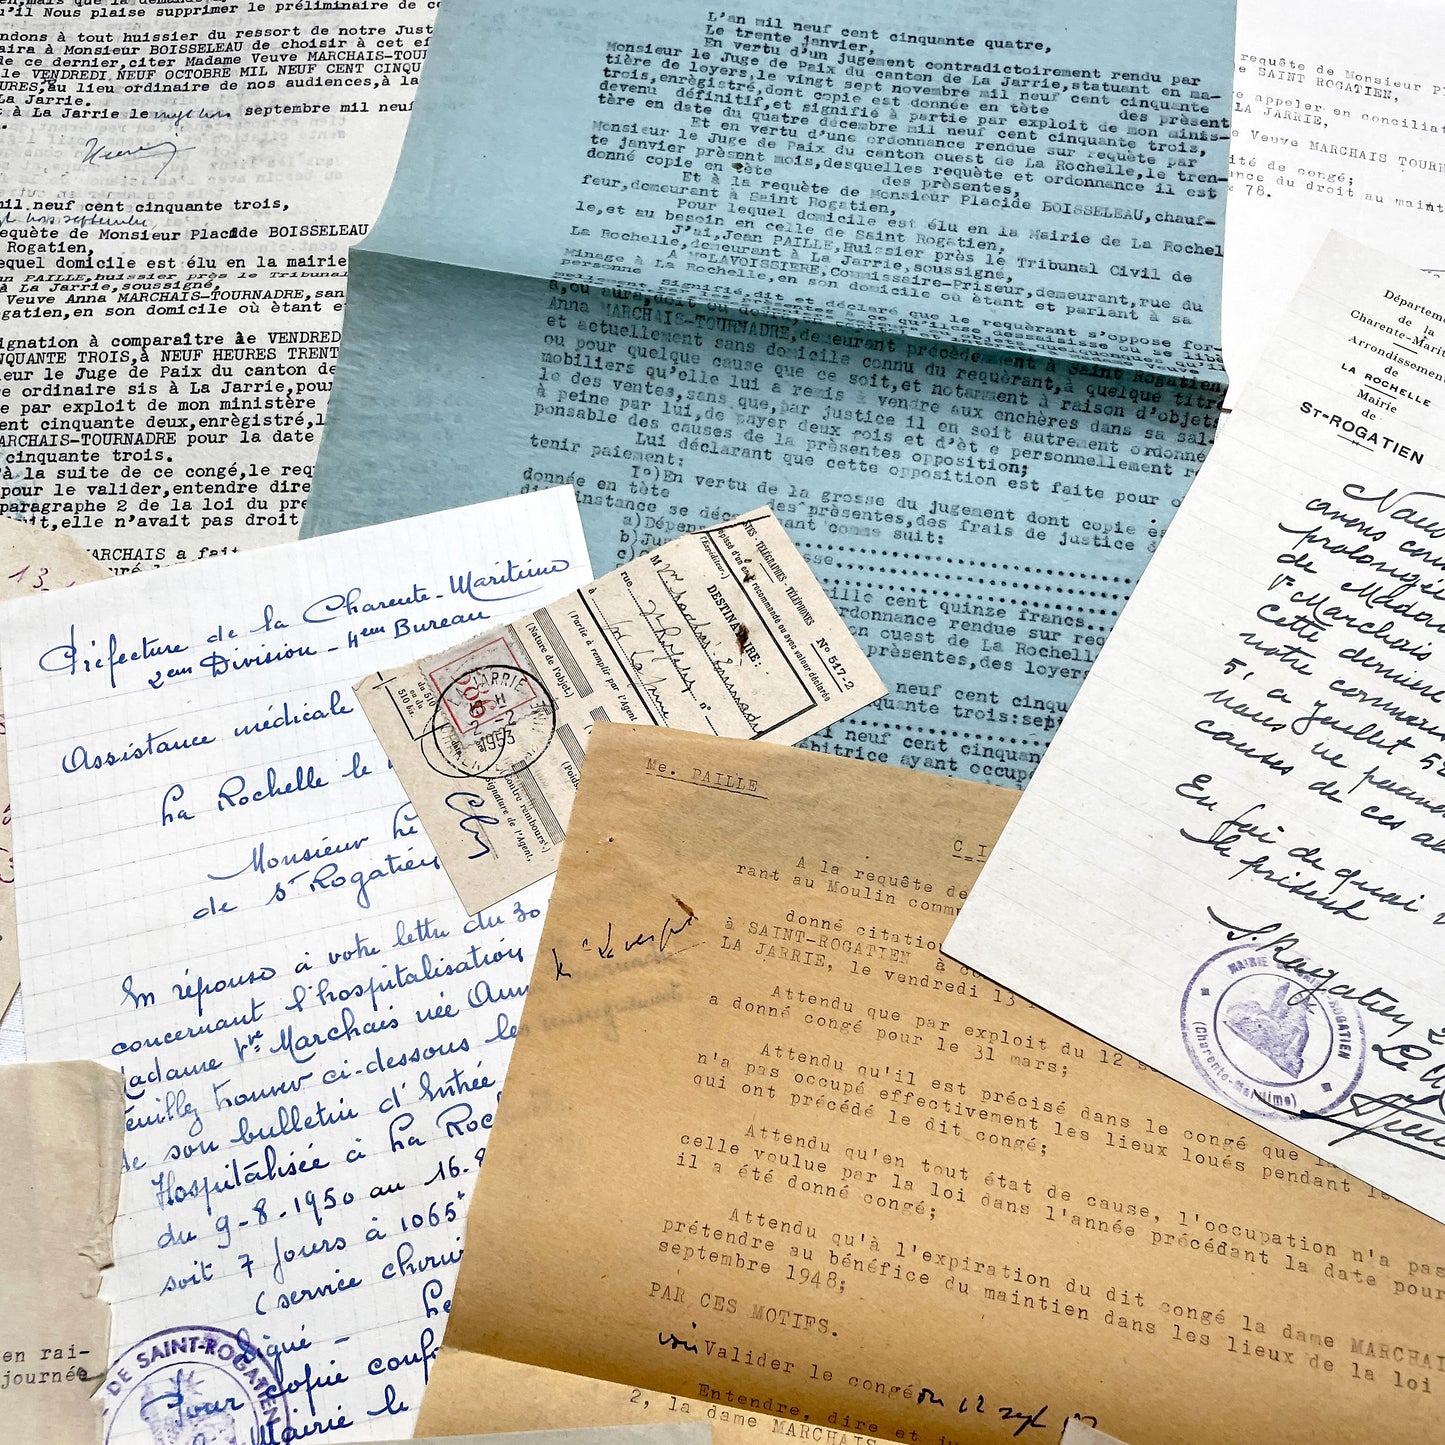 qu'il Nous plaise supprimer le préliminaire de
ndons à tout huissier du ressort de notre Just
aira à Monsieur BOISSELEAU de choisir à cet ef
de ce dernier,citer Madame Veuve MARCHAIS-TOUR
le VENDREDI NEUF OCTOBRE MIL NEUF CENT CINQU
URES,au lieu ordinaire de nos audiences,à la
La Jarrie.
à La Jarrie le septembre mil neuf
mil neuf cent cinquante trois,
septembre,
equête de Monsieur Placide BOISSELEAU
Rogatien,
equel domicile est élu en la mairie
an PAILLE,huissier près le Tribunal
à La Jarrie,soussigné,
Veuve Anna MARCHAIS-TOURNADRE,san
gatien,en son domicile où étant e
ignation à comparaître le VENDRED
NQUANTE TROIS,à NEUF HEURES TRENT
ieur le Juge de Paix du canton de
e ordinaire sis à La Jarrie,pour
e par exploit de mon ministère
ent cinquante deux,enregistré,l
ARCHAIS-TOURNADRE pour la date
cinquante trois.
'à la suite de ce congé,le req
pour le valider,entendre dire
paragraphe 2 de la loi du pre
it,elle n'avait pas droit
MARCHAIS a fait
L'an mil neuf cent cinquante quatre,
Le trente janvier,
En vertu d'un jugement contradictoirement rendu par
Monsieur le Juge de Paix du canton de La Jarrie,statuant en ma-
tière de loyers,le vingt sept novembre mil neuf cent cinquante
trois,enregistré,dont copie est donnée en tête des présent
devenu définitif,et signifié à partie par exploit de mon minis-
tère en date du quatre décembre mil neuf cent cinquante trois,
Et en vertu d'une ordonnance rendue sur requête par
Monsieur le Juge de Paix du canton ouest de La Rochelle,le tren-
te janvier présent mois,desquelles requête et ordonnance il est
donné copie en tête des présentes,
Et à la requête de Monsieur Placide BOISSELEAU,chauf-
feur,demeurant à Saint Rogatien,
Pour lequel domicile est élu en la Mairie de La Rochel
le,et au besoin en celle de Saint Rogatien,
J'ai,Jean PAILLE,Huissier près le Tribunal Civil de
La Rochelle,demeurant à La Jarrie,soussigné,
A Me LAVOISSIERE,Commissaire-Priseur,demeurant,rue du
Minage à La Rochelle,en son domicile où étant et parlant à sa
personne
signifié,dit et déclaré que le requérant s'oppose for-
Anna MARCHAIS-TOURNADRE,demeurant précédemment à Saint Rogatien,
et actuellement sans domicile connu du requérant,à quelque titre
ou pour quelque cause que ce soit,et notamment à raison d'objets
mobiliers qu'elle lui a remis à vendre aux enchères dans sa sal-
le des ventes,sans que,par justice il en soit autrement ordonné
à peine par lui,de payer deux fois et d'êt e personnellement re
ponsable des causes de la présentes opposition;
Lui déclarant que cette opposition est faite pour o
tenir paiement:
I°)En vertu de la grosse du jugement dont copie es
donnée en tête des présentes,des frais de justice à
instance se décomposant comme suit:
a)Dépen
b)Jug
c)
mille cent quinze francs..
ordonnance rendue sur req
on ouest de La Rochell
présentes,des loyers
neuf cent cinq
quante trois:sept
neuf cent cinquan
bitrice ayant occup
requête de Monsieur P
e SAINT ROGATIEN,
e appeler en conciliat
LA JARRIE,
e Veuve MARCHAIS TOURN
ité de congé;
ance du droit au maint
78.
Départeme
de la
Charente-Marit
Arrondissement
de
LA ROCHELLE
Mairie
de
ST-ROGATIEN
Nous
avons
prolongé
de Madam
Ve Marchais
Cette dernière
notre commun
5, a Juillet 52
nous ne pouvon
causes de ces ab
En foi de quoi
le présent
St Rogatien
Le
MAIRIE DE SAINT ROGATIEN
(Charente-Maritime)
Préfecture de la Charente-Maritime
2eme Division - 4eme Bureau
Assistance médicale
La Rochelle le
Monsieur Le
de St Rogatien
En réponse à votre lettre du 30
concernant l'hospitalisation
Madame Vve Marchais née Ann
Veuillez trouver ci-dessous les
de son bulletin d'Entrée
Hospitalisée à La Roc
du 9-8-1950 au 16.8
soit 7 jours à 1065
(service chirur
Signé - Le
Pour copie conf
Mairie le
DE SAINT-ROGATIEN
en rai-
journée
13
POSTES - TÉLÉGRAPHES - TÉLÉPHONES
No 517-2
d'un recommandé ou avec valeur déclarée
(Expéditeur.)
DESTINATAIRE:
rue no
à
(Partie à remplir par l'Agent
(Nature de l'objet.)
(Poids
(Contre rembours'.)
Signature de l'Agent,
du 510
ou du
510 bis.
LA JARRIE
H
2-2
1953
Me. PAILLE
C I
A la requête de
rant au Moulin comm
donné citation
à SAINT-ROGATIEN à co
LA JARRIE, le vendredi 13
Attendu que par exploit du 12 se
a donné congé pour le 31 mars;
Attendu qu'il est précisé dans le congé que la
n'a pas occupé effectivement les lieux loués pendant le
qui ont précédé le dit congé;
Attendu qu'en tout état de cause, l'occupation n'a pas
celle voulue par la loi dans l'année précédant la date pour
il a été donné congé;
Attendu qu'à l'expiration du dit congé la dame MARCHAI
prétendre au bénéfice du maintien dans les lieux de la loi
septembre 1948;
PAR CES MOTIFS.
voir Valider le congé du 12 sept
Entendre, dire et ju
2, la dame MARCHAIS